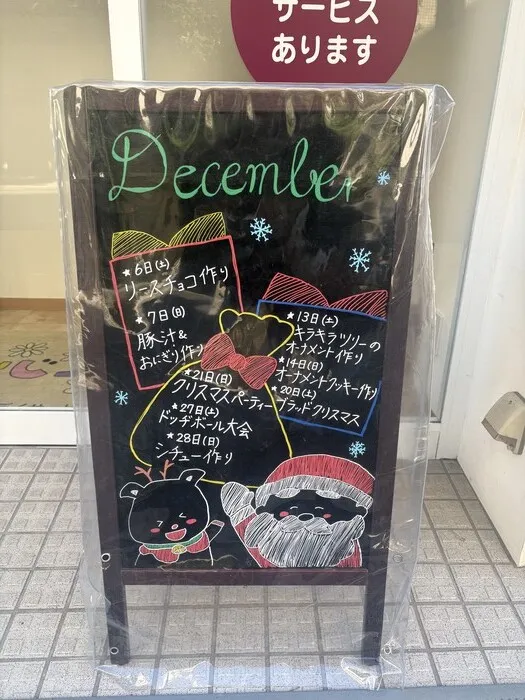 サービス
あります
December
★6日(土)
リースチョコ作り
★7日(日)
豚汁&
おにぎり作り
★13日(土)
キラキラツリーの
オーナメント作り
★14日(日)
オーナメントクッキー作り
★20日(土)
ブラッドクリスマス
★21日(日)
クリスマスパーティー
★27日(土)
ドッヂボール大会
★28日(日)
シチュー作り